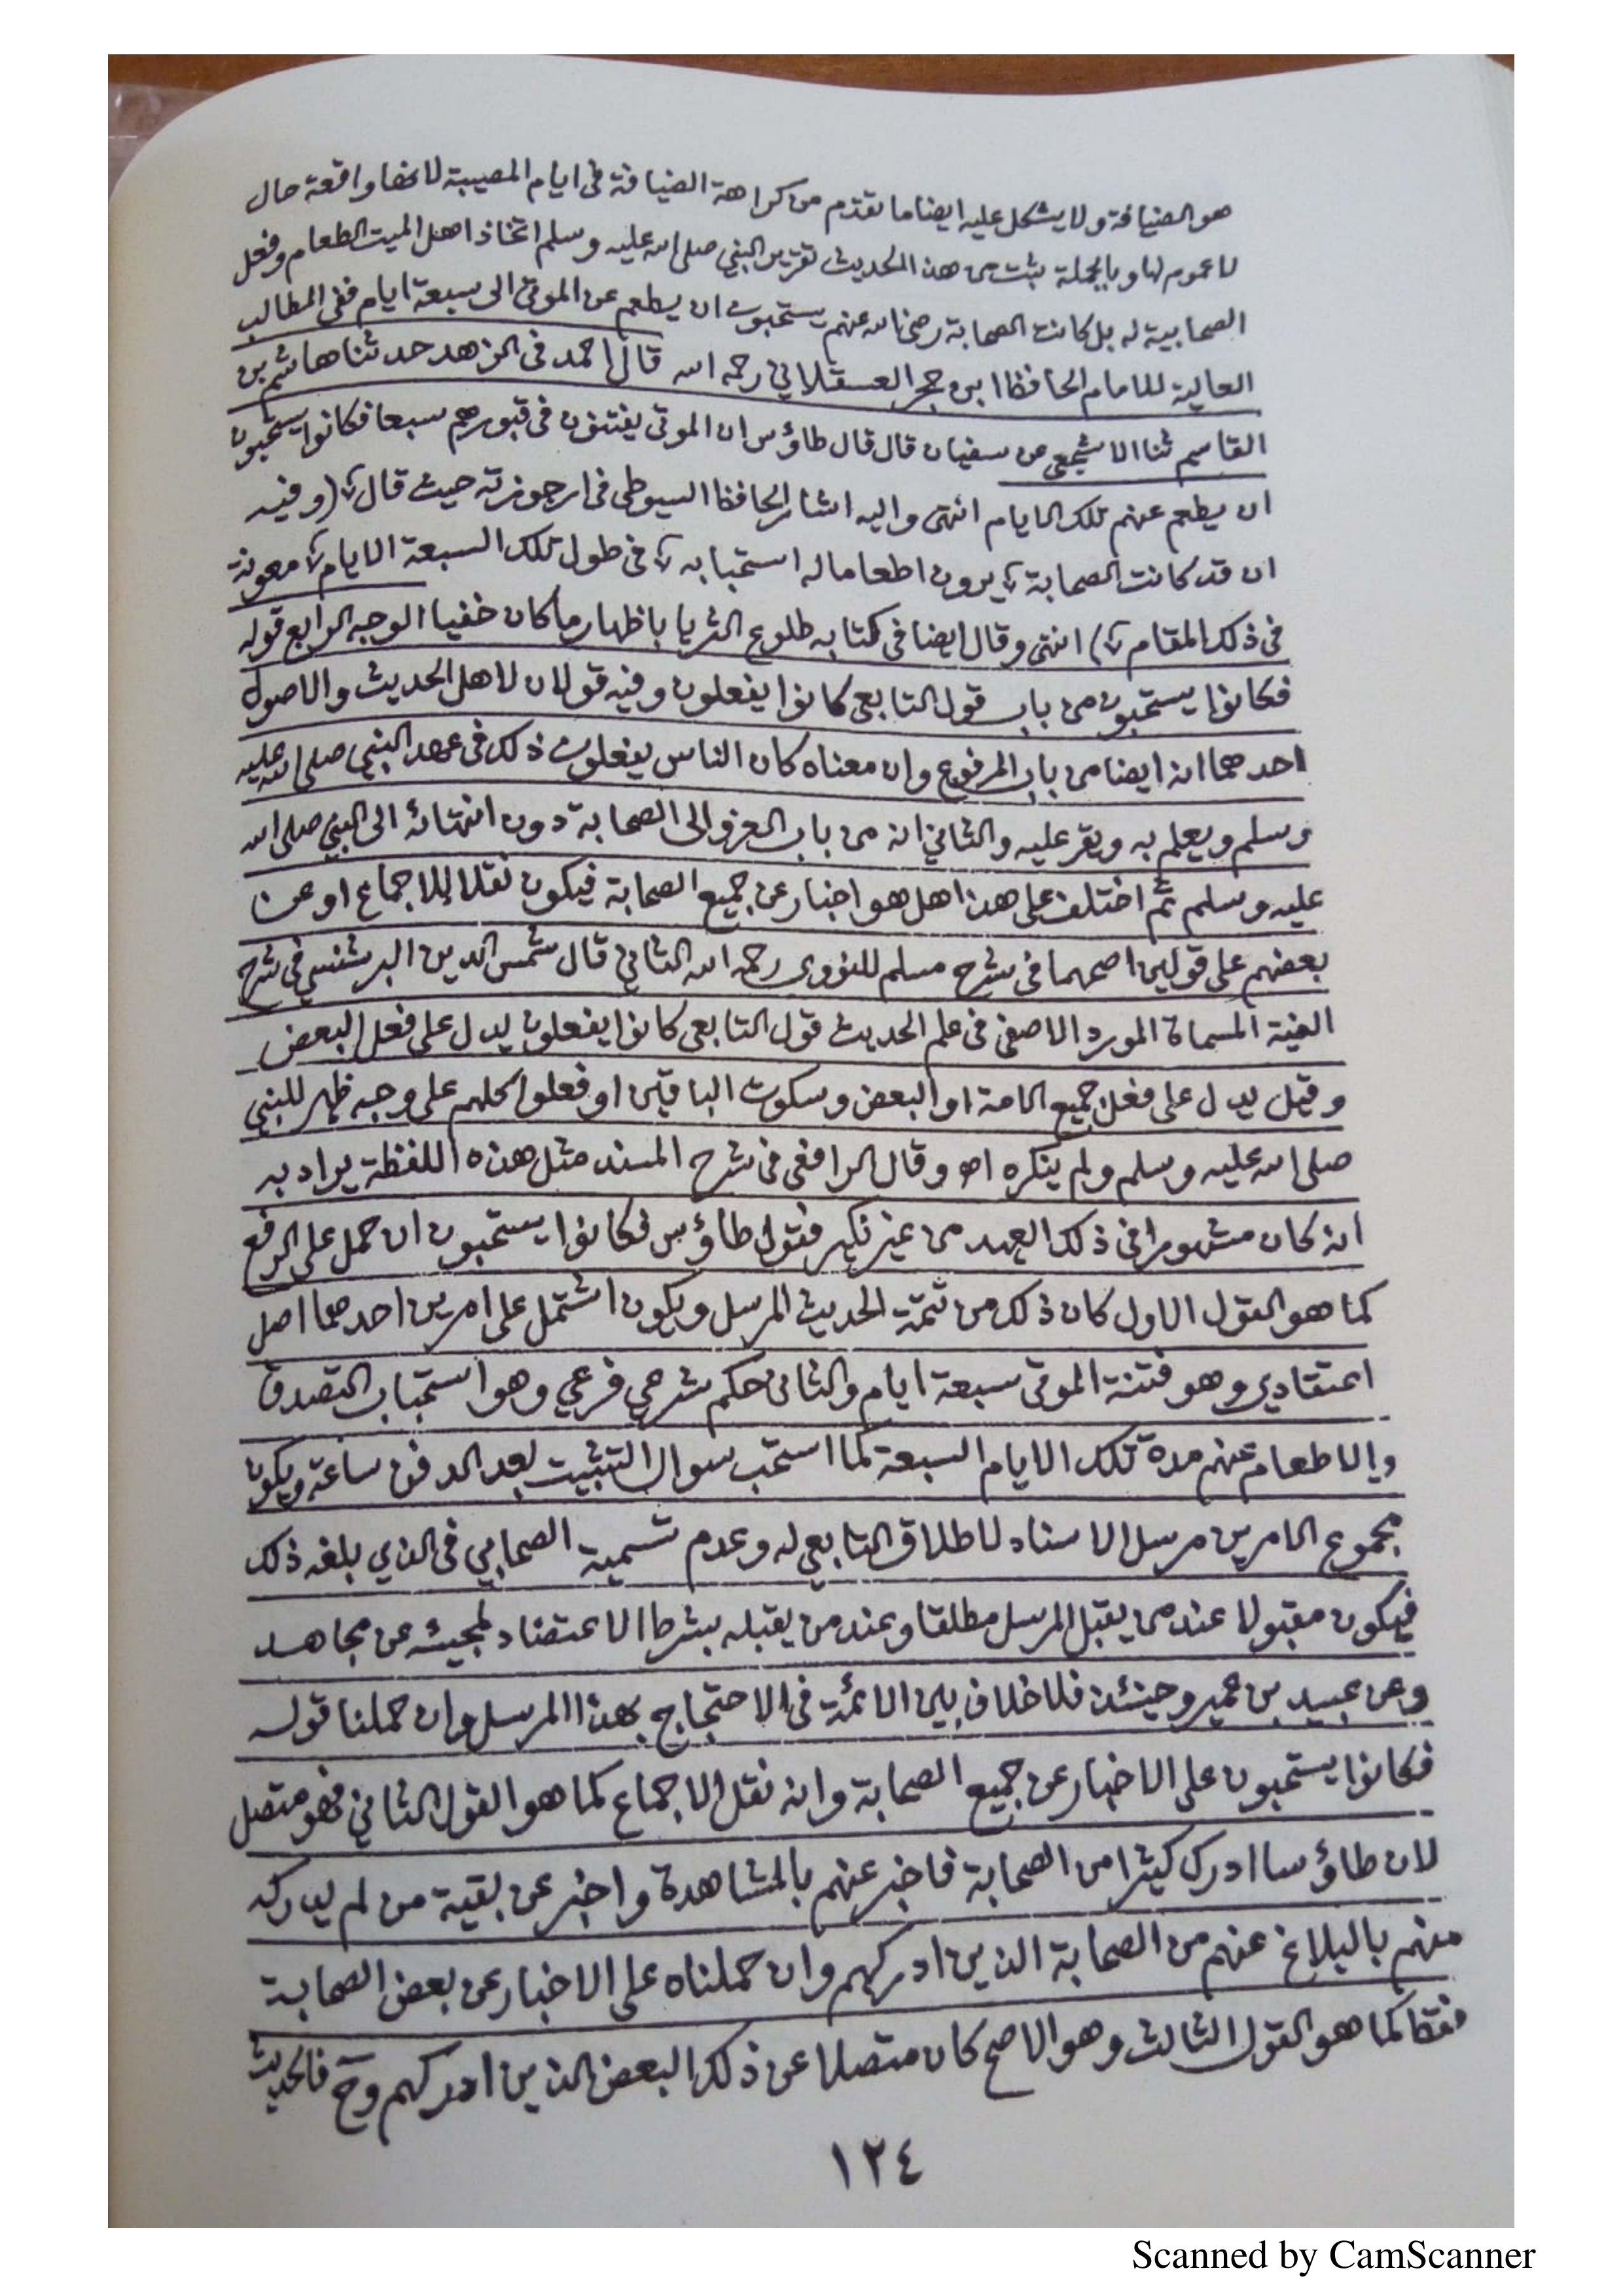 هو الضيافة ولا يشكل عليه ايضا ما تقدم من كراهة الضيافة فى ايام المصيبة لانها واقعة حال
لا عموم لها و بالجملة يثبت من هذا الحديث تقرير النبي صلى الله عليه وسلم اتخاذ اهل الميت الطعام وفعل
الصحابية له بل كانت الصحابة رضي الله عنهم يستحبون ان يطعم عن الموتى الى سبعة ايام ففى المطالب
العالية للامام الحافظ ابن حجر العسقلاني رحمه الله قال احمد فى الزهد حدثنا هاشم بن
القاسم ثنا الاشجعى عن سفيان قال قال طاؤس ان الموتى يفتنون فى قبورهم سبعا فكانوا يستحبون
ان يطعم عنهم تلك الايام انتهى واليه اشار الحافظ السيوطى فى ارجوزته حيث قال (وفيه
ان قد كانت الصحابة يرون اطعاما له استحبابه فى طول تلك السبعة الايام معونة
فى ذلك المقام) انتهى وقال ايضا فى كتابه طلوع الثريا باظهار ما كان خفيا الوجه الرابع قوله
فكانوا يستحبون من باب قول التابعى كانوا يفعلون وفيه قولان لاهل الحديث والاصول
احدهما انه ايضا من باب المرفوع وان معناه كان الناس يفعلون ذلك فى عهد النبي صلى الله عليه
وسلم ويعلم به ويقر عليه والثاني انه من باب العزو الى الصحابة دون انتهائه الى النبي صلى الله
عليه وسلم ثم اختلف على هذا هل هو اخبار عن جميع الصحابة فيكون نقلا للاجماع او عن
بعضهم على قولين اصحهما فى شرح مسلم للنووى رحمه الله الثاني قال شمس الدين البرشنسي فى شرح
الفية المسماة المورد الاصفى فى علم الحديث قول التابعى كانوا يفعلون يدل على فعل البعض
وقيل يدل على فعل جميع الامة او البعض وسكوت الباقين او فعلوا كلهم على وجه ظهر للنبي
صلى الله عليه وسلم ولم ينكره اه وقال الرافعى فى شرح المسند مثل هذه اللفظة يراد به
انه كان مشهورا فى ذلك العهد من غير نكير فقول طاؤس فكانوا يستحبون ان حمل على الرفع
كما هو القول الاول كان ذلك من تتمة الحديث المرسل ويكون اشتمل على امرين احدهما اصل
اعتقادي وهو فتنة الموتى سبعة ايام والثانى حكم شرعي فرعي وهو استحباب التصدق
والاطعام عنهم مدة تلك الايام السبعة كما استحب سوال التثبيت بعد الدفن ساعة ويكون
مجموع الامرين مرسل الاسناد لاطلاق التابعي له وعدم تسمية الصحابي فى الذي بلغه ذلك
فيكون مقبولا عند من يقبل المرسل مطلقا وعند من يقبله بشرط الاعتضاد لمجيئه عن مجاهد
وعن عبيد بن عمير وحينئذ فلا خلاف بين الائمة فى الاحتجاج بهذا المرسل وان حملنا قوله
فكانوا يستحبون على الاخبار عن جميع الصحابة وانه نقل الاجماع كما هو القول الثاني فهو متصل
لان طاؤسا ادرك كثيرا من الصحابة فاخبر عنهم بالمشاهدة واخبر عن بقية من لم يدركه
منهم بالبلاغ عنهم من الصحابة الذين ادركهم وان حملناه على الاخبار عن بعض الصحابة
فقط كما هو القول الثالث وهو الاصح كان متصلا عن ذلك البعض الذين ادركهم وح فالحديث
١٢٤
Scanned by CamScanner